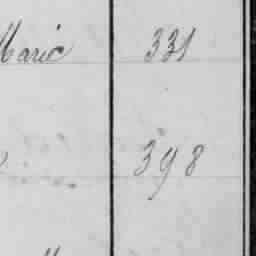 Marie 331
398